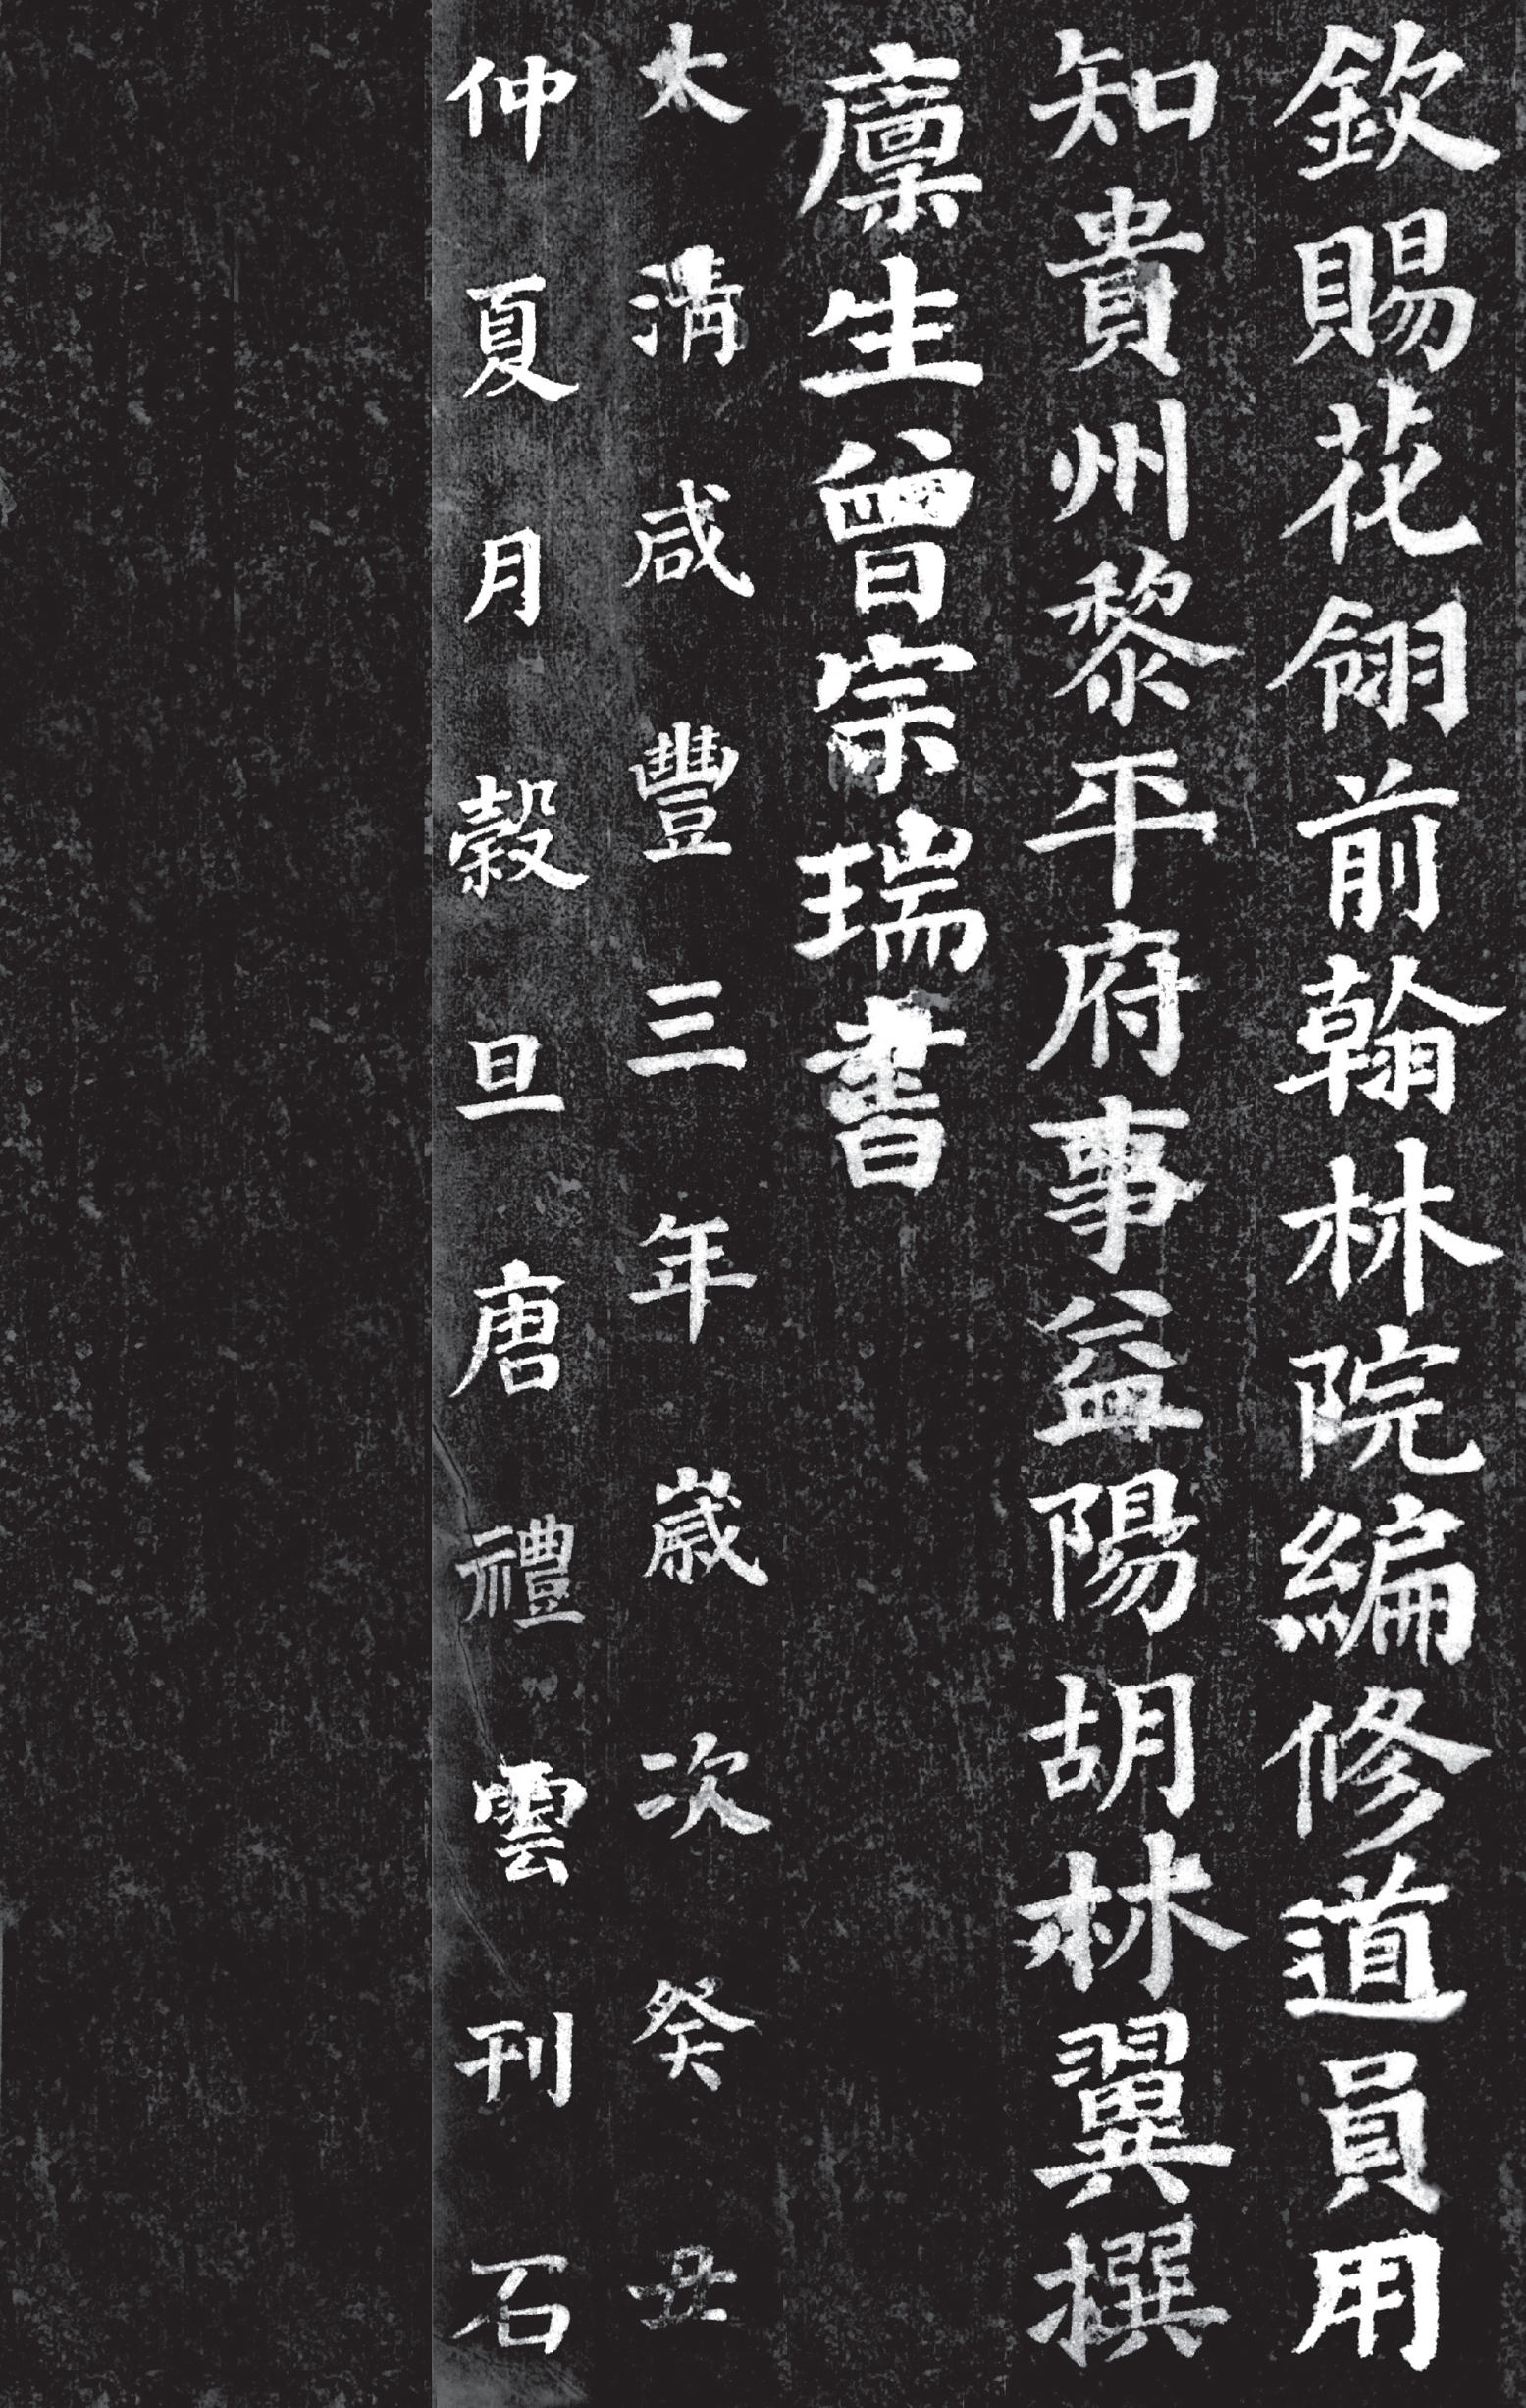 欽賜花翎前翰林院編修道員用
知貴州黎平府事益陽胡林翼撰
廩生曾宗瑞書
太清咸豐三年歲次癸丑
仲夏月穀旦唐禮雲刊石